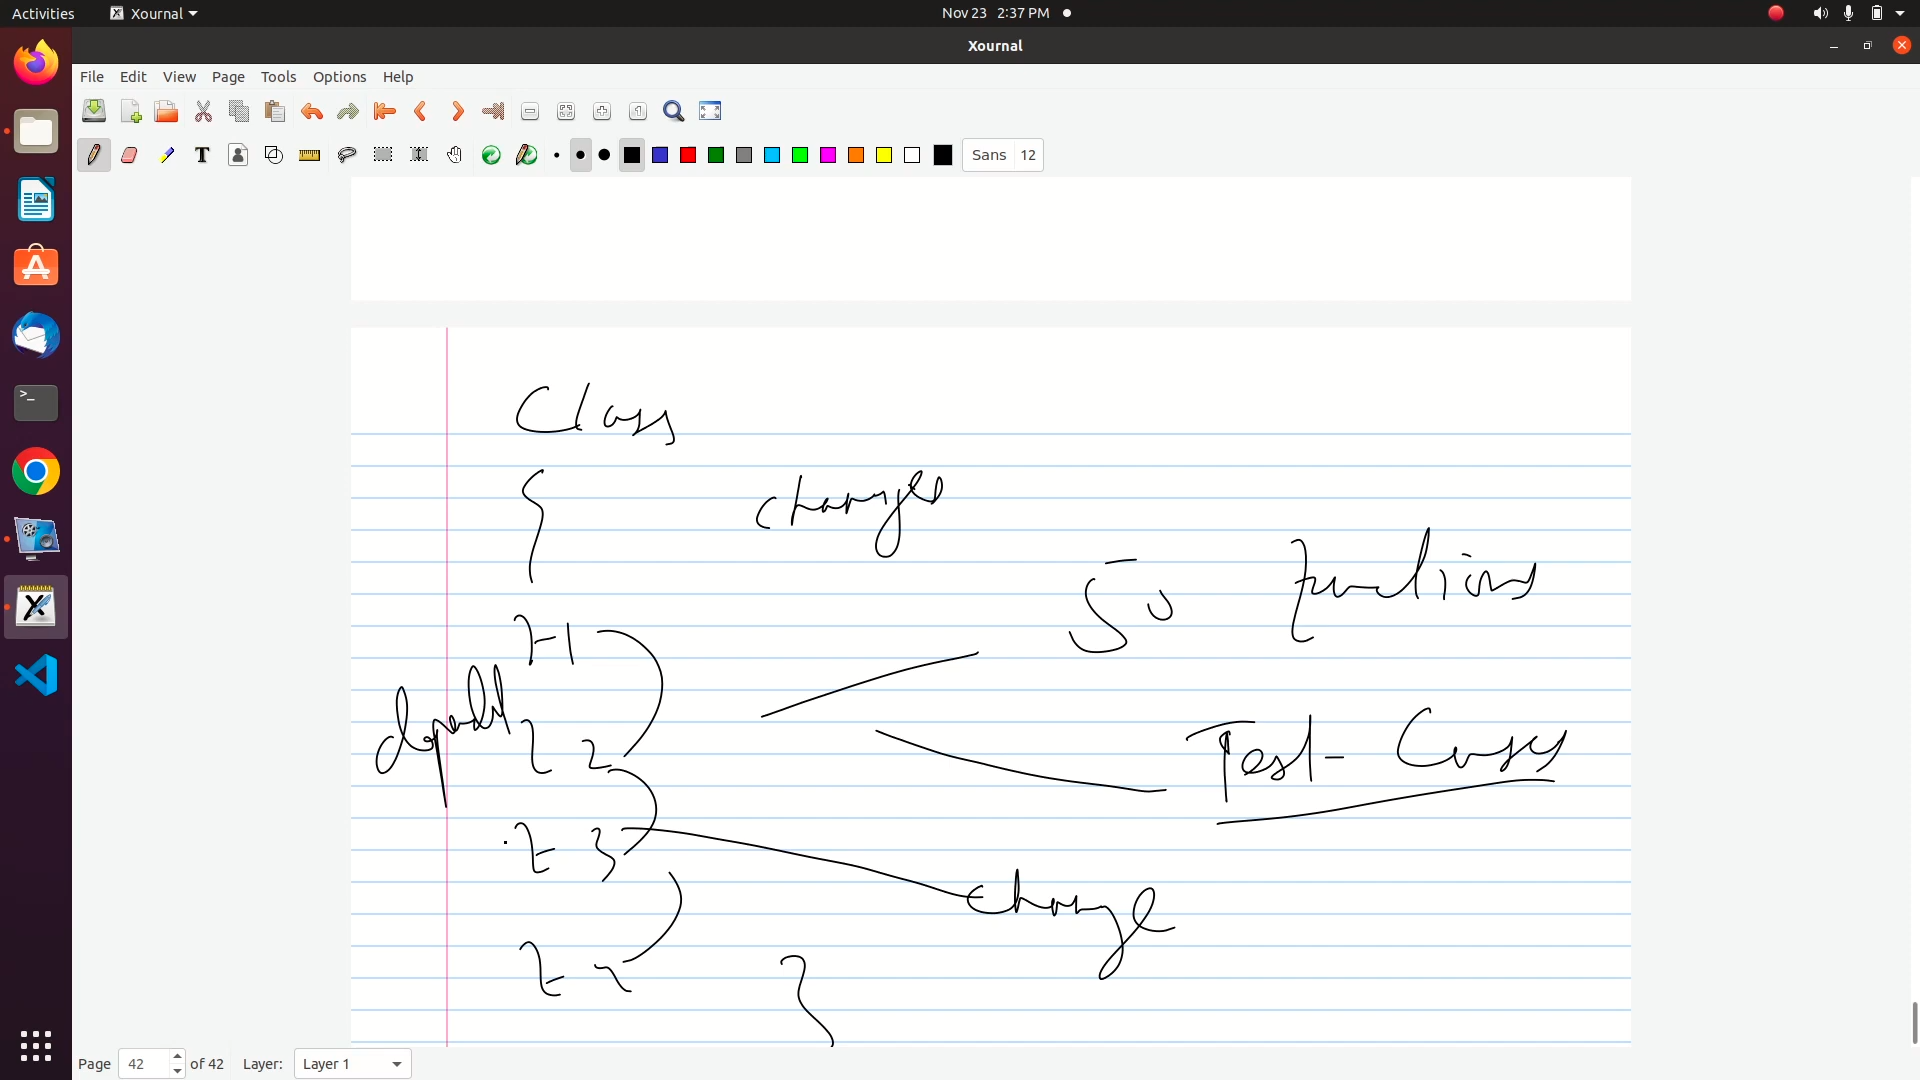 Activities Xournal Nov 23 2:37 PM
Xournal
File Edit View Page Tools Options Help
Sans 12
Class
{
changes
50 functions
F1
F 2
Test Cases
F 3
change
}
Page 42 of 42 Layer: Layer 1